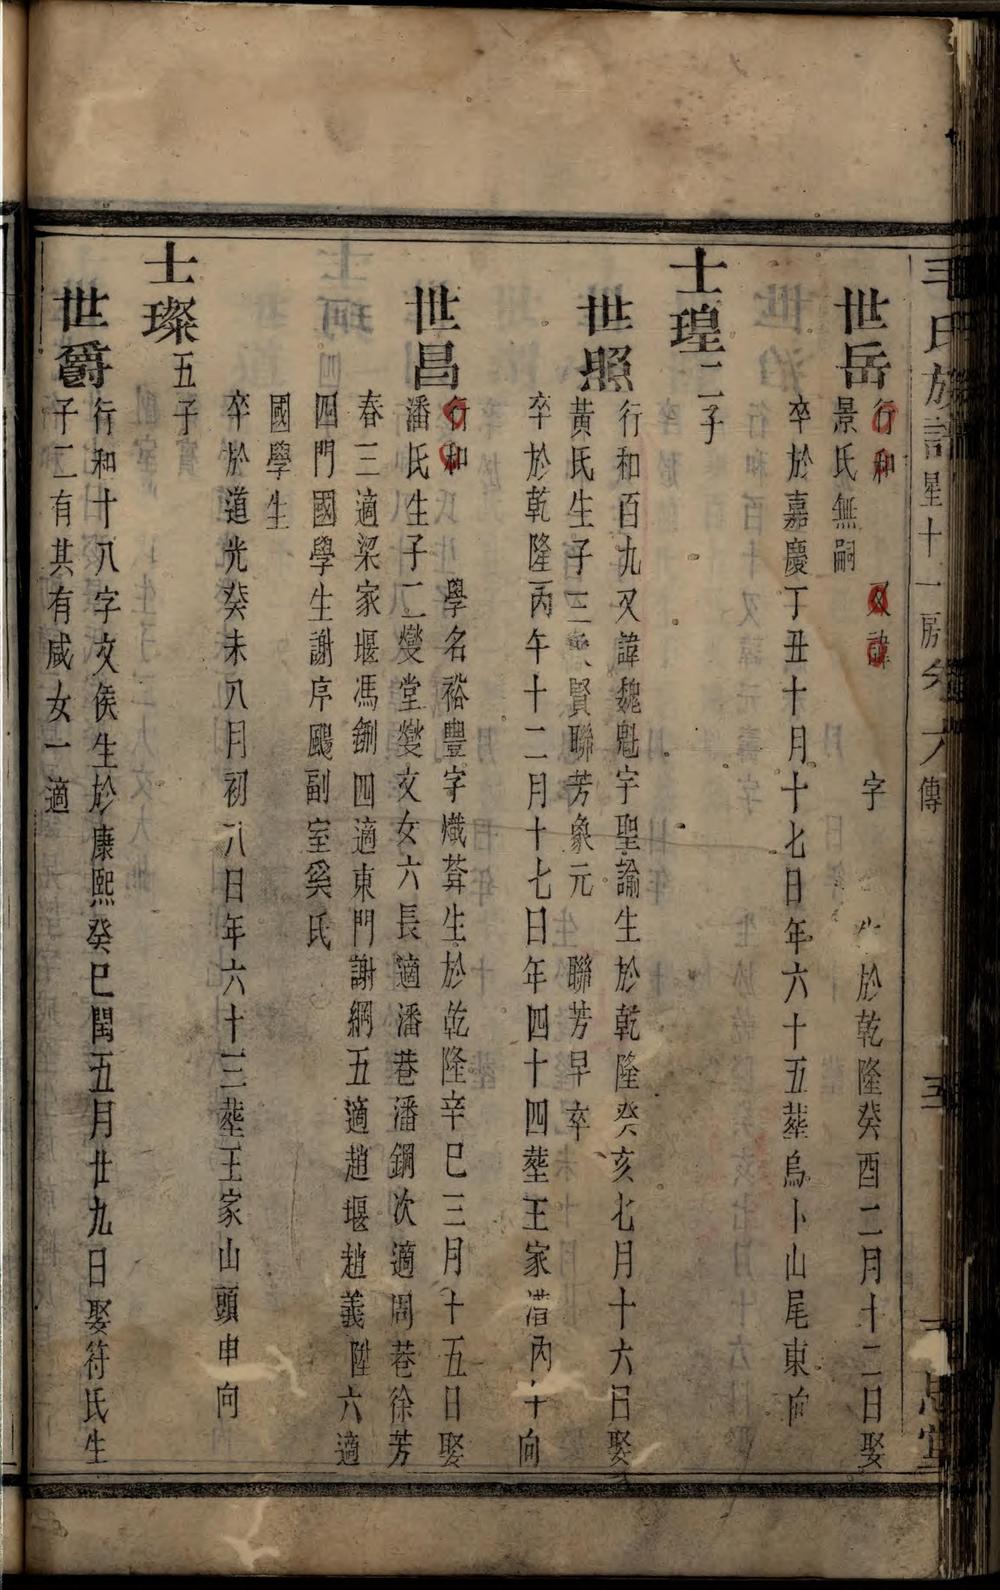 毛氏族譜星十一房 傳
世岳 行和 又諱 字 生於乾隆癸酉二月十二日娶
景氏無嗣
卒於嘉慶丁丑十月十七日年六十五葬烏卜山尾東向
士瑝二子
世照 行和百九又諱魏魁字聖諭生於乾隆癸亥七月十六日娶
黃氏生子三 賢聯芳象元 聯芳早卒
卒於乾隆丙午十二月十七日年四十四塟王家 內 向
世昌 行和 學名裕豐字熾葊生於乾隆辛巳三月十五日娶
潘氏生子二燮堂燮文女六長適潘巷潘鋼次適周巷徐芳
春三適梁家堰馮鉶四適東門謝綱五適趙堰趙義陞六適
四門國學生謝序颺副室奚氏
國學生
卒於道光癸未八月初八日年六十三塟王家山頭申向
士璨五子
世爵 行和十八字文侯生於康熙癸巳閏五月廿九日娶符氏生
子二有其有咸女一適